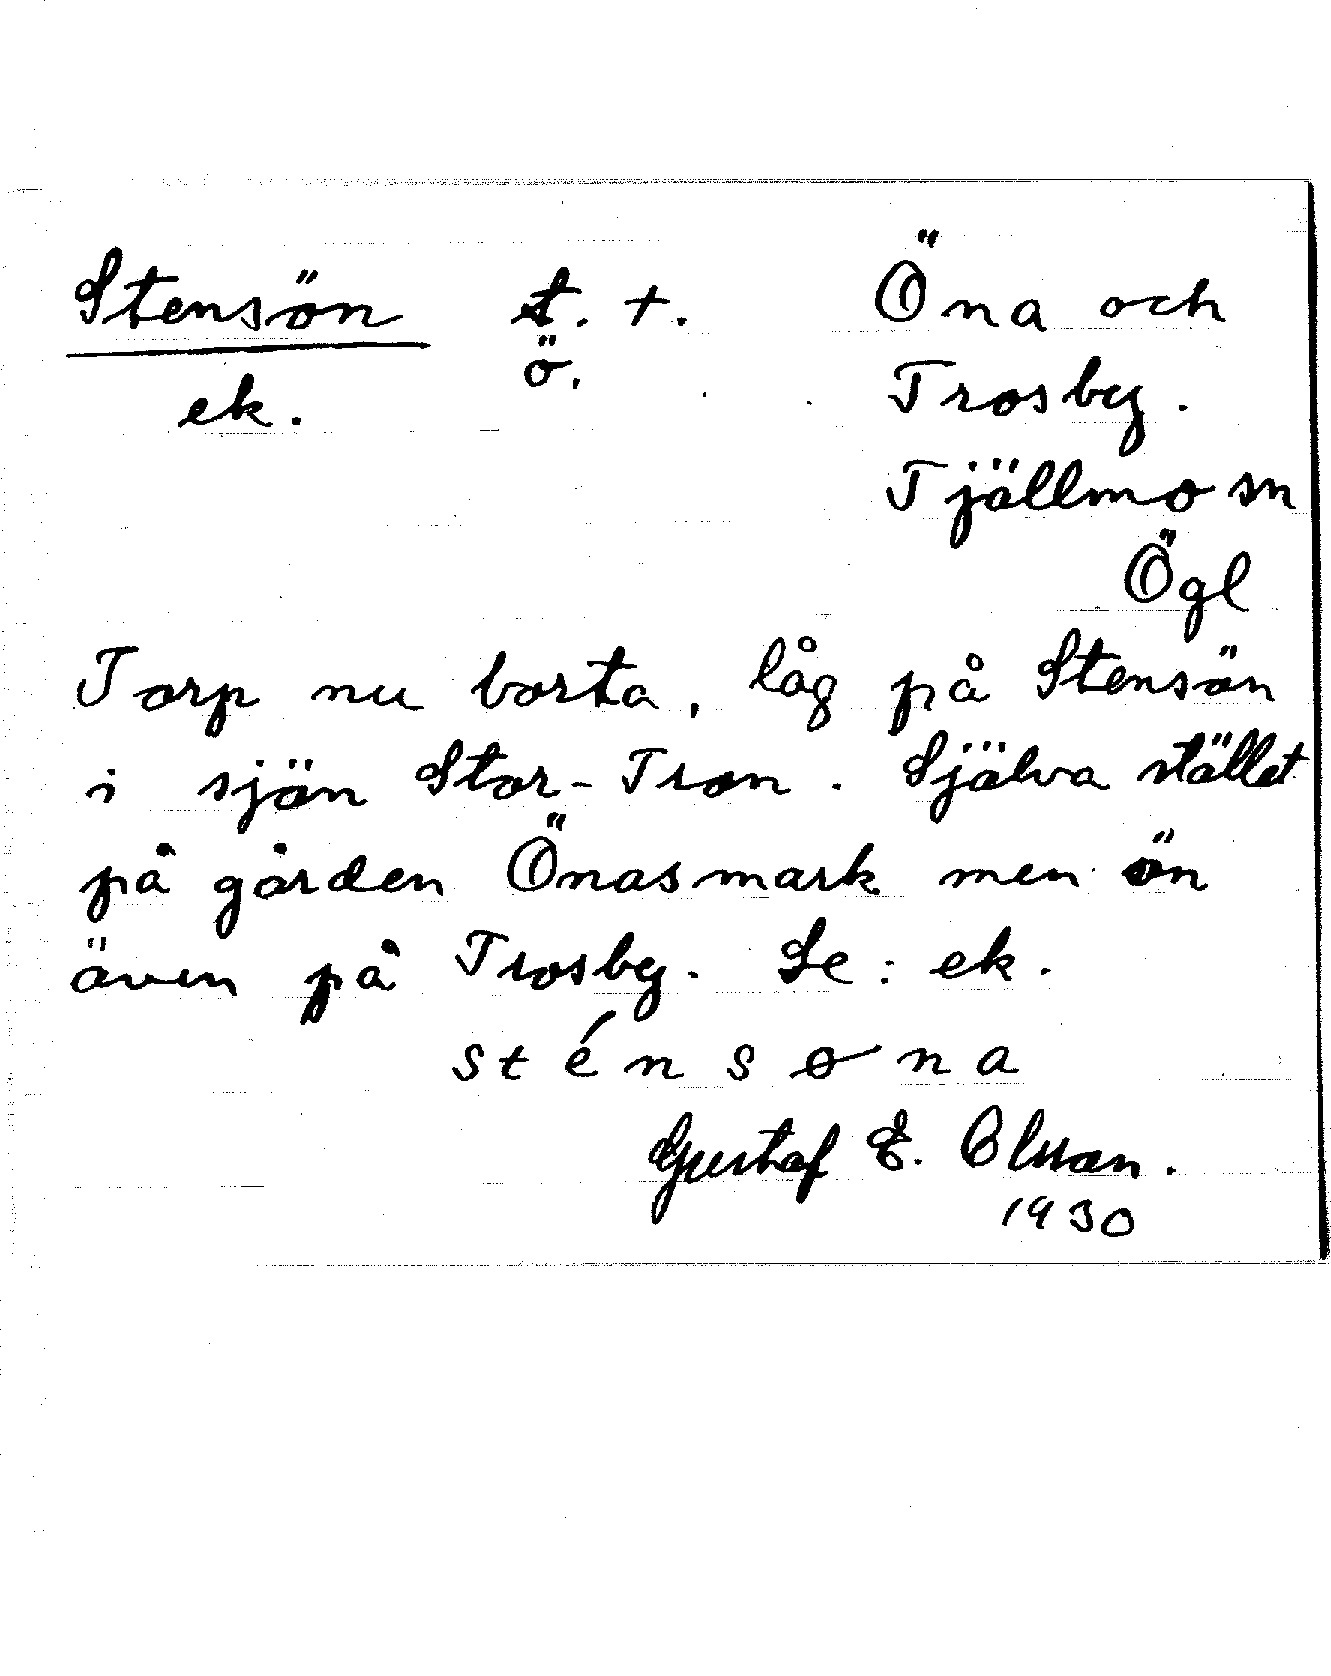 Stensön t. +. Öna och
ö.
ek. Trosby.
Tjällmo sn
Ögl
Torp nu borta, låg på Stensön
i sjön Stor-Tron. Själva stället
på gården Önasmark men ön
även på Trosby. Se: ek.
sténsona
Gustaf E. Olsson.
1930